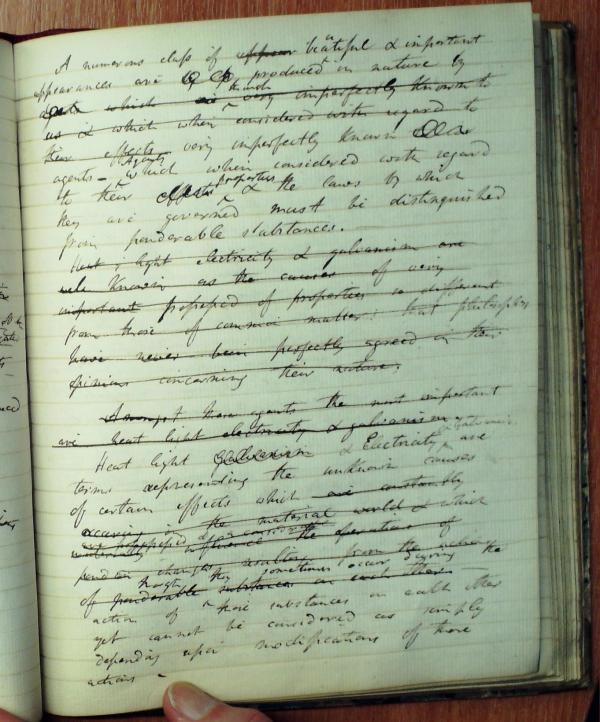 A numerous class of beautiful & important
appearances are produced in nature by
which are though very imperfectly known to
us & which when considered with regard to
their effects very imperfectly known
agents - Agents which when considered with regard
to their effects properties & the laws by which
they are governed must be distinguished
from ponderable substances. -
Heat, light electricity & galvanism are
known as the causes of very
important possessed of properties so different
from those of common matter: that philosophers
have never been perfectly agreed in their
opinions concerning their nature.
Amongst these agents the most important
are heat light electricity & galvanism
Heat light galvanism & Electricity & Galvanism are
terms representing the unknown causes
of certain effects which are constantly
occurring in the material world & which
materially influence the operations of
changes resulting from the
of ponderable substances on each other
though they sometimes occur during the
action of those substances on each other
yet cannot be considered as simply
depending upon modifications of those
actions -